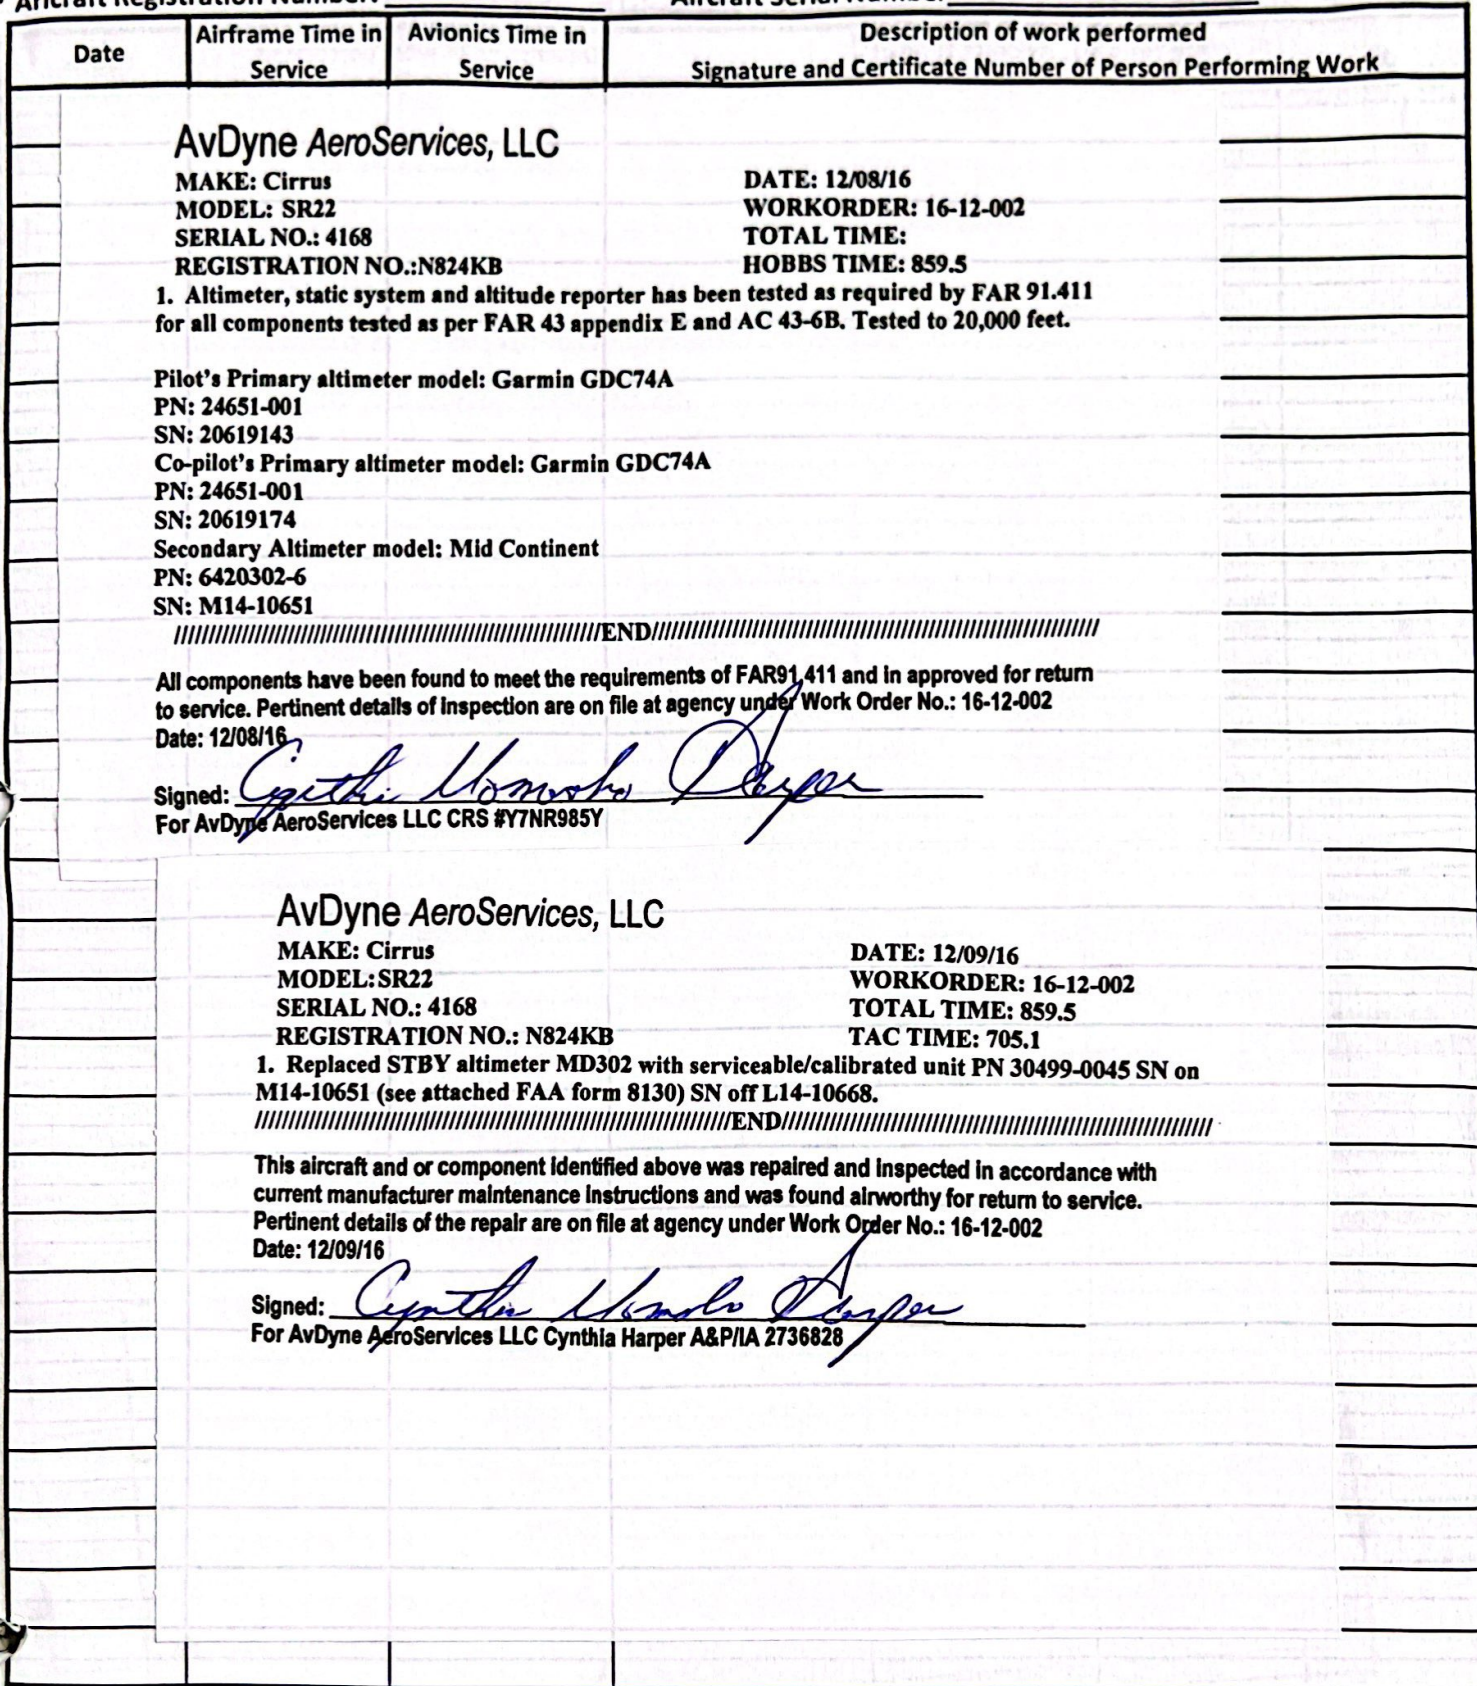 Aircraft Registration Number: Aircraft Serial Number
Date
Airframe Time in Service
Avionics Time in Service
Description of work performed
Signature and Certificate Number of Person Performing Work
AvDyne AeroServices, LLC
MAKE: Cirrus DATE: 12/08/16
MODEL: SR22 WORKORDER: 16-12-002
SERIAL NO.: 4168 TOTAL TIME:
REGISTRATION NO.:N824KB HOBBS TIME: 859.5
1. Altimeter, static system and altitude reporter has been tested as required by FAR 91.411
for all components tested as per FAR 43 appendix E and AC 43-6B. Tested to 20,000 feet.
Pilot's Primary altimeter model: Garmin GDC74A
PN: 24651-001
SN: 20619143
Co-pilot's Primary altimeter model: Garmin GDC74A
PN: 24651-001
SN: 20619174
Secondary Altimeter model: Mid Continent
PN: 6420302-6
SN: M14-10651
////////////////////////////////////////////////////////////END////////////////////////////////////////////////////////////////
All components have been found to meet the requirements of FAR91.411 and in approved for return
to service. Pertinent details of inspection are on file at agency under Work Order No.: 16-12-002
Date: 12/08/16
Signed: Cynthia Harper
For AvDyne AeroServices LLC CRS #Y7NR985Y
AvDyne AeroServices, LLC
MAKE: Cirrus DATE: 12/09/16
MODEL:SR22 WORKORDER: 16-12-002
SERIAL NO.: 4168 TOTAL TIME: 859.5
REGISTRATION NO.: N824KB TAC TIME: 705.1
1. Replaced STBY altimeter MD302 with serviceable/calibrated unit PN 30499-0045 SN on
M14-10651 (see attached FAA form 8130) SN off L14-10668.
////////////////////////////////////////////////////////////////////END//////////////////////////////////////////////////////////////
This aircraft and or component identified above was repaired and inspected in accordance with
current manufacturer maintenance instructions and was found airworthy for return to service.
Pertinent details of the repair are on file at agency under Work Order No.: 16-12-002
Date: 12/09/16
Signed: Cynthia Harper
For AvDyne AeroServices LLC Cynthia Harper A&P/IA 2736828